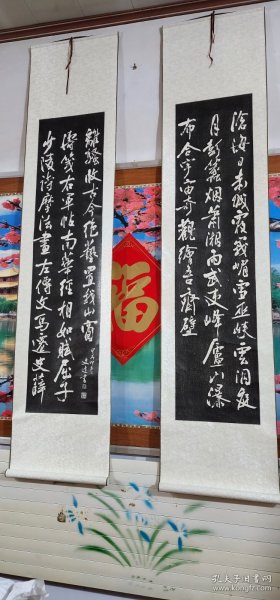 滄海日赤城霞峨嵋雪巫峡雲洞庭
月彭蠡烟瀟湘雨武夷峰廬山瀑
布合宇宙奇觀繪吾齋壁
少陵詩摩詰畫左傳文馬遷史薛
濤箋右軍帖南華經相如賦屈子
離騷收古今絕藝置我山窗
福
孔夫子旧书网